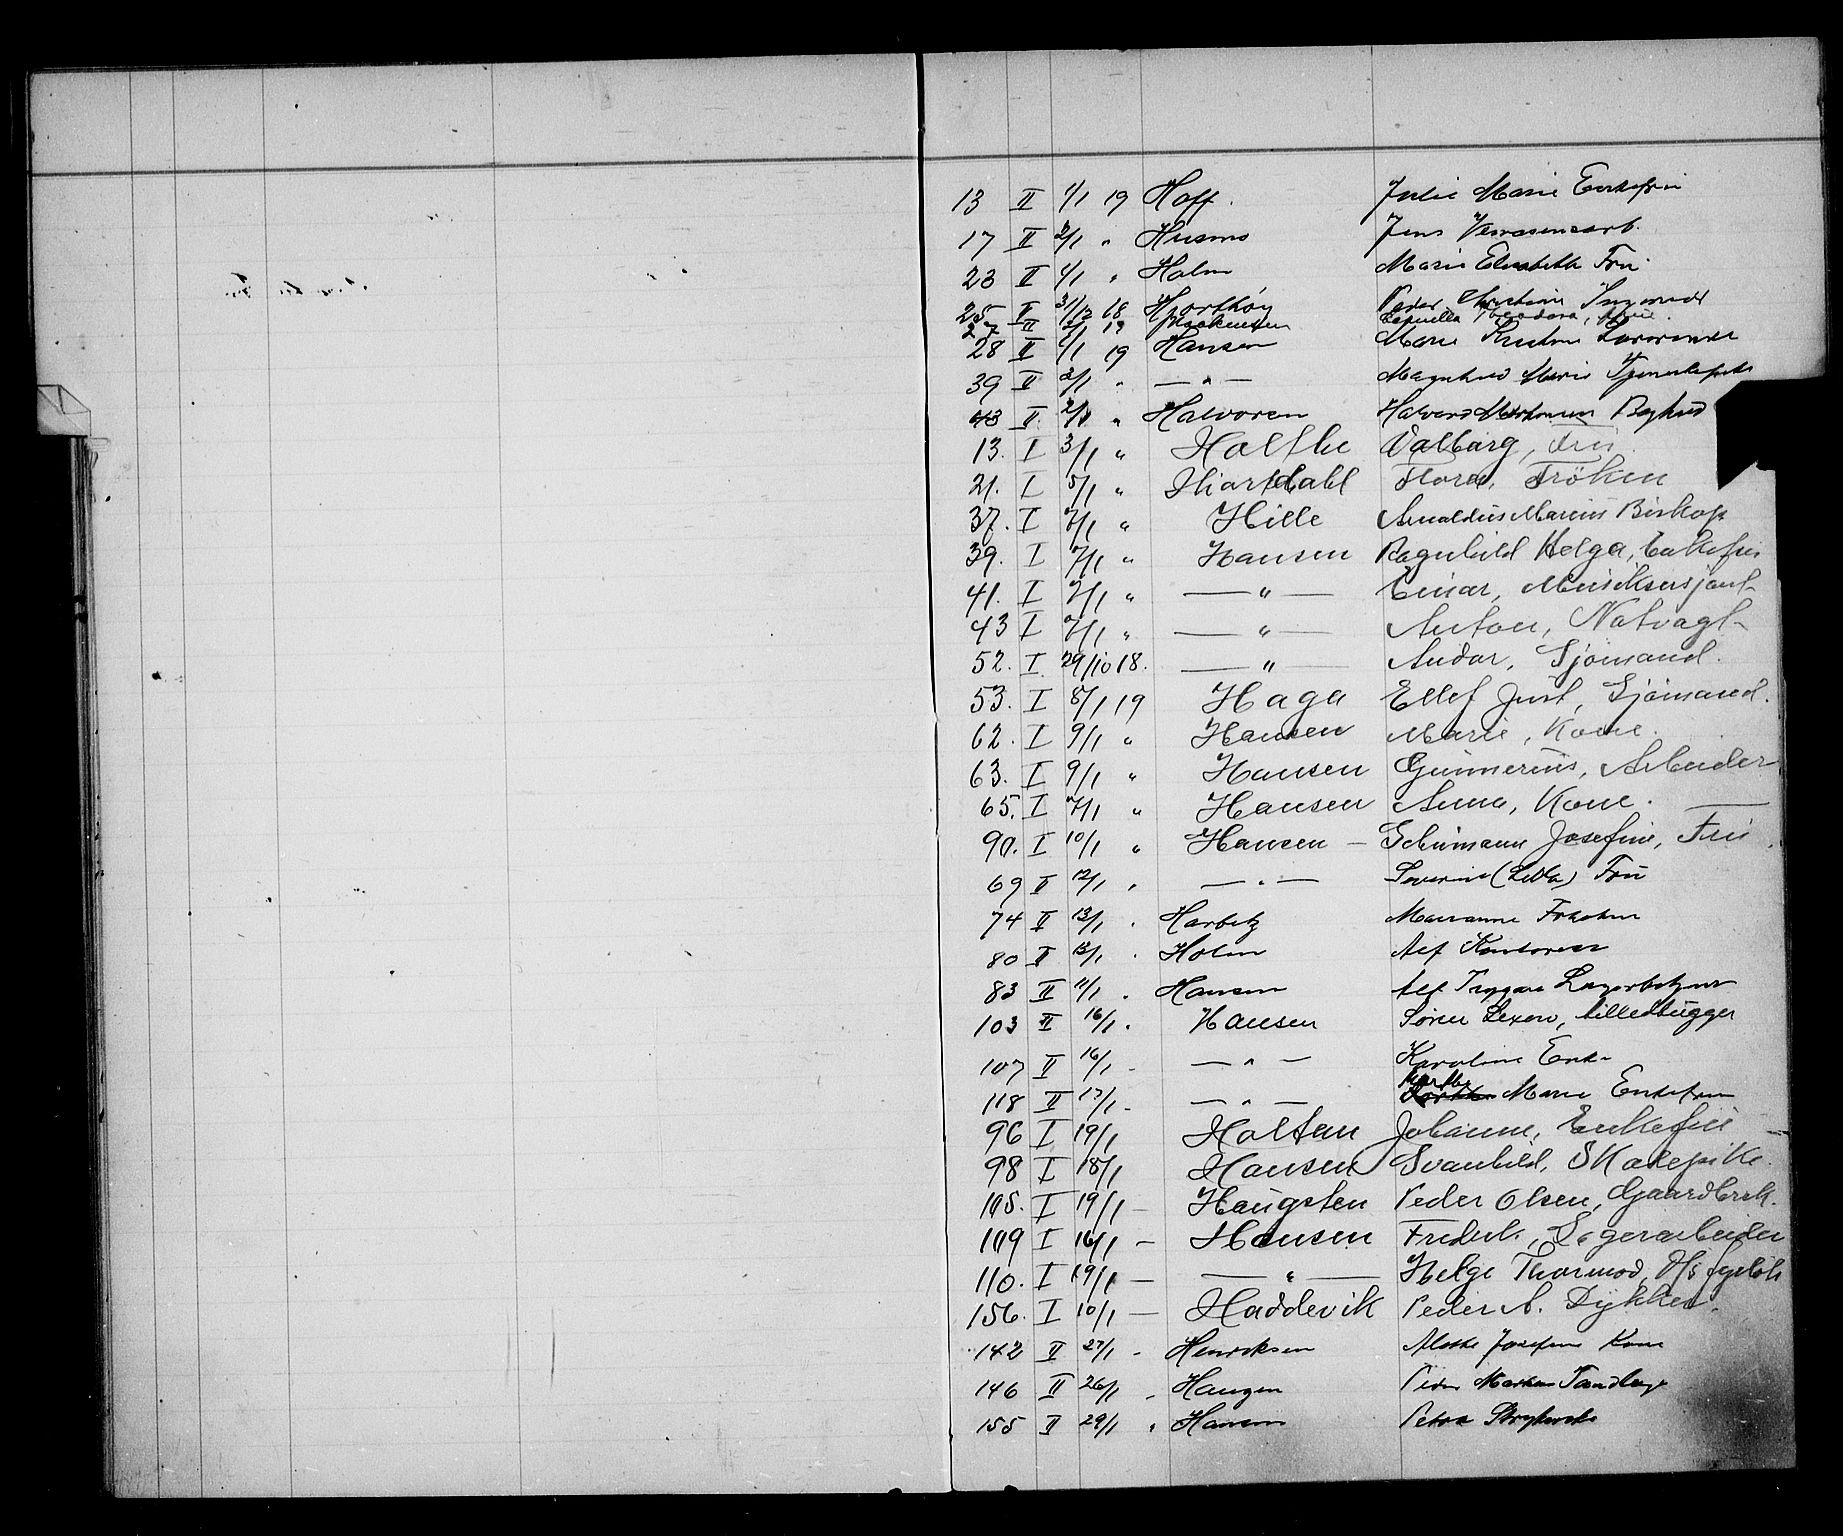 13 II 1/1 19 Hoff. Julie Marie Enkefru
17 II 2/1 " Husmo Jens
23 II 4/1 " Holm Marie Elisabeth Fru
25 II 31/12 18 Hjorthöy Peder Christian
27 II 2/1 19 Theodora,
28 II 1/1 19 Hansen Marie
39 II 2/1 " — " — Marie
43 II 2/1 " Halvorsen Halvard
13. I 3/1 " Holthe Valborg, Fru.
21. I 5/1 " Hiortdahl Flora, Fröken
37. I 7/1 " Hille Arnoldus Marius Biskop
39. I 7/1 " Hansen Ragnhild Helga, Enkefru
41. I 7/1 " — " — Einar, Musiksersjant
43 I 7/1 " — " — Anton, Natvagt
52. I. 29/10 18. — " — Andor, Sjömand.
53. I 8/1 19 Haga Ellef Just, Sjömand.
62. I 9/1 " Hansen Marie, Kone.
63. I 9/1 " Hansen Gunnerius, Arbeider
65. I 7/1 " Hansen Anna, Kone.
90. I 10/1 " Hansen — Schumann Josefine, Fru
69 II 12/1 " — " — Severine Fru
74 II 13/1 " Harbitz Marianne Frøken
80 II 13/1 " Holm Alf
83 II 11/1 " Hansen Alf Trygve
103 II 16/1 " Hansen Sören Lexow, billedhugger
107 II 16/1 - — " — Karoline Enke
118 II 17/1 - — " — Marthe Marie Enkefru
96 I 19/1 Holtan Johanne, Enkefru —
98 I 18/1 Hansen Svanhild, Skolepike.
105. I 19/1 — Haugsten Peder Olsen, Gaardbruk.
109 I 16/1 — Hansen Fredrik, Lagerarbeider
110. I 19/1 — — " — Helge Thormod,
156. I 10/1 — Haddevik Peder A. Dykker.
142 II 27/1 - Henriksen Josefine Kone
146 II 26/1 - Haugen Peder
155 II 29/1 " Hansen Petra